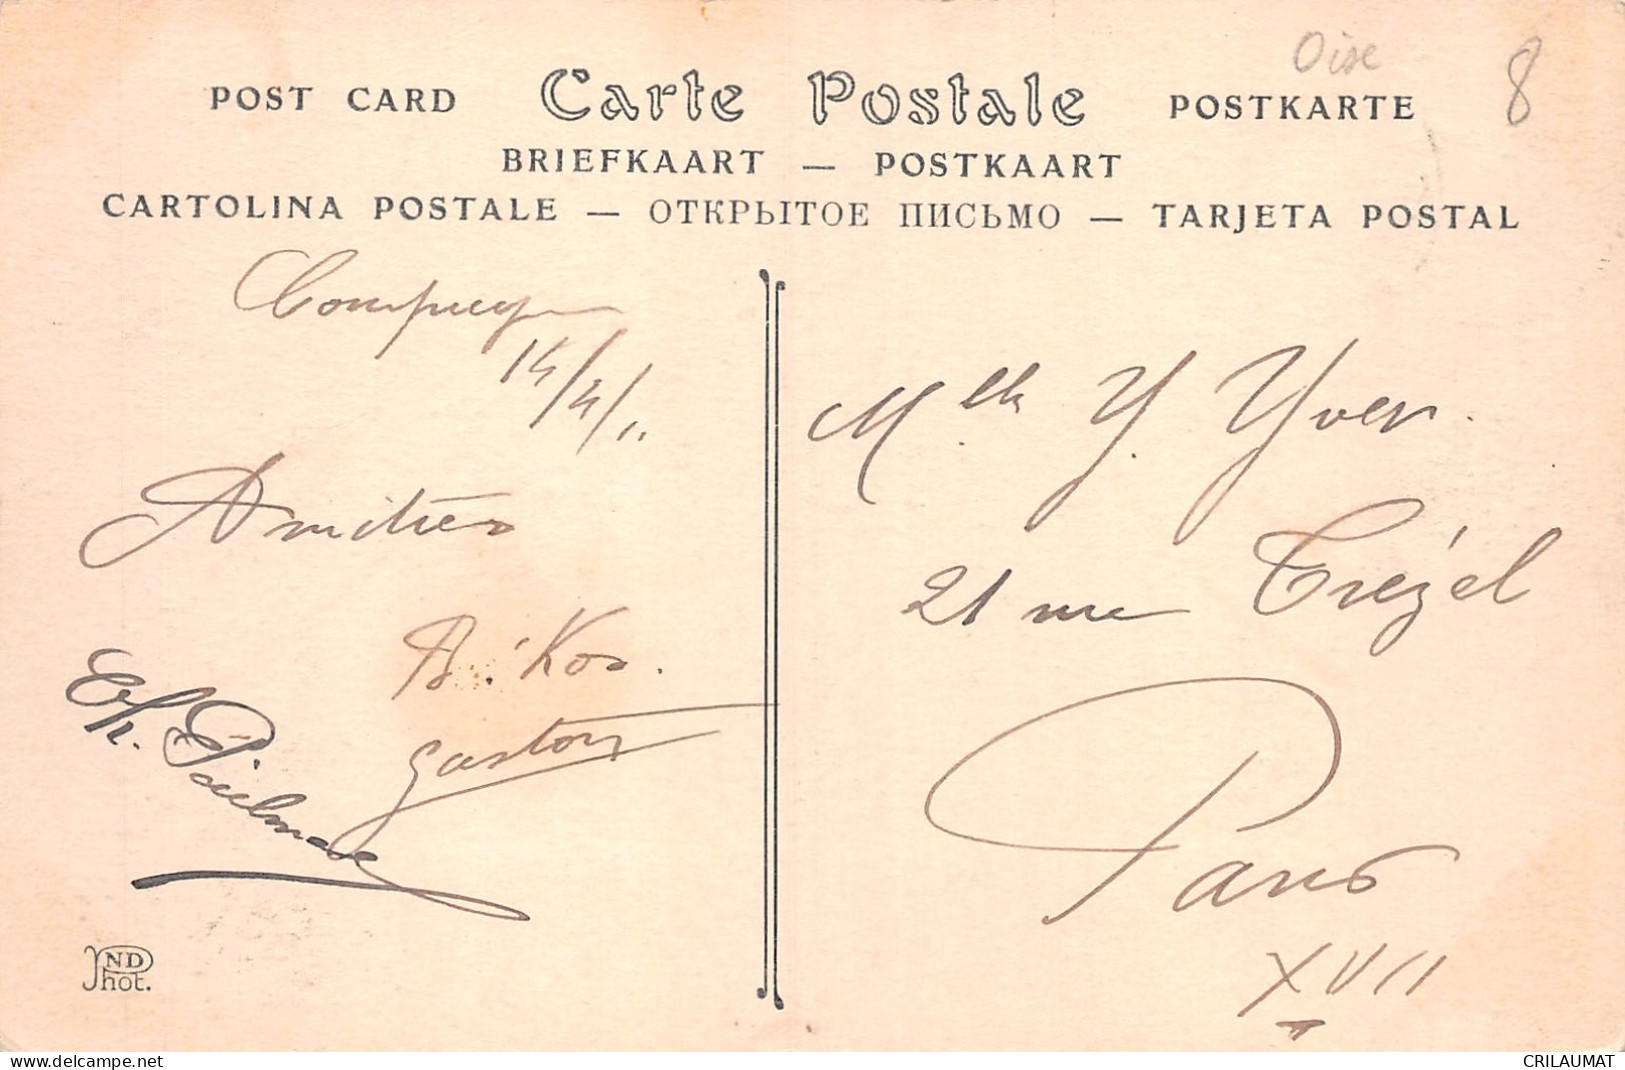 Oise
8
POST CARD Carte Postale POSTKARTE
BRIEFKAART — POSTKAART
CARTOLINA POSTALE — ОТКРЫТОЕ ПИСЬМО — TARJETA POSTAL
Compiegne
14/4/11
Amitiés
A. Kos.
Gaston
Ch.
Mlle Y. Yver.
21 rue Trézel
Paris
XVII
ND Phot.
www.delcampe.net
CRILAUMAT